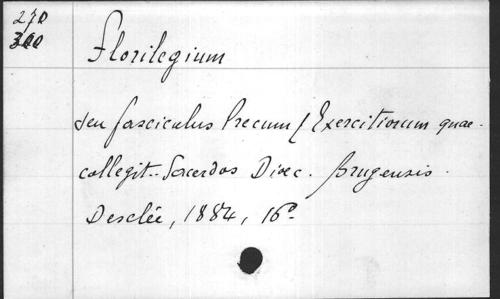 270
300
Florilegium
seu fasciculus Precum / Exercitiorum quae
collegit.. Sacerdos Dioec. Brugensis.
Desclée, 1884, 16°